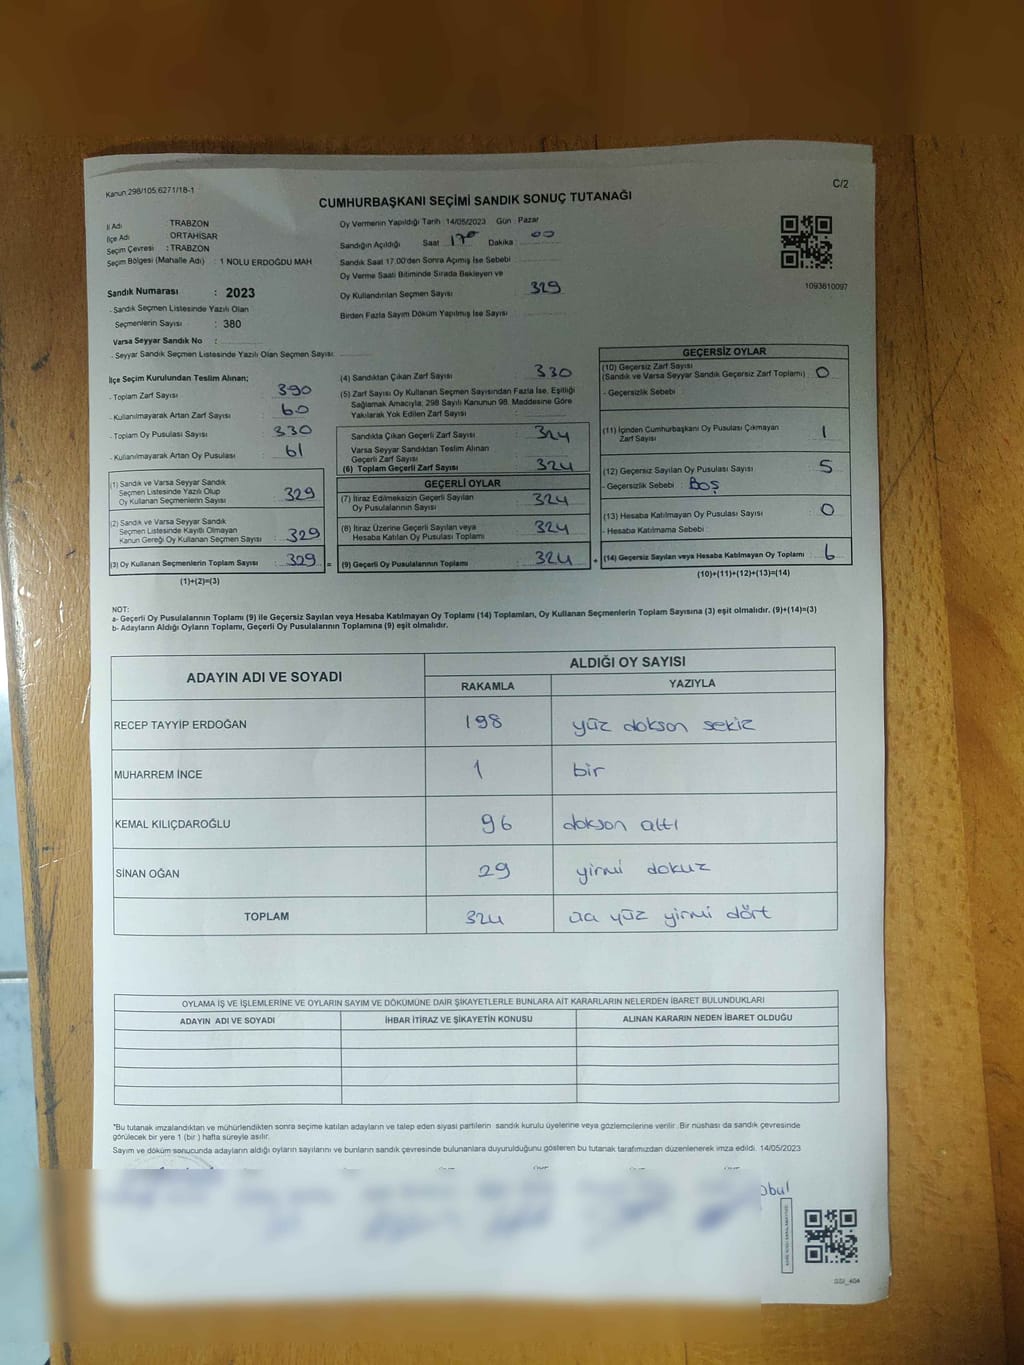 Kanun 298/105;6271/18-1
C/2
CUMHURBAŞKANI SEÇİMİ SANDIK SONUÇ TUTANAĞI
İl Adı TRABZON
İlçe Adı ORTAHİSAR
Seçim Çevresi : TRABZON
Seçim Bölgesi (Mahalle Adı) : 1 NOLU ERDOĞDU MAH
Sandık Numarası : 2023
- Sandık Seçmen Listesinde Yazılı Olan
Seçmenlerin Sayısı : 380
Varsa Seyyar Sandık No :
- Seyyar Sandık Seçmen Listesinde Yazılı Olan Seçmen Sayısı
Oy Vermenin Yapıldığı Tarih : 14/05/2023 Gün : Pazar
Sandığın Açıldığı Saat 17 00 Dakika 00
Sandık Saat 17.00'den Sonra Açımış İse Sebebi
Oy Verme Saati Bitiminde Sırada Bekleyen ve
Oy Kullandırılan Seçmen Sayısı : 329
Birden Fazla Sayım Döküm Yapılmış İse Sayısı :
1093610097
İlçe Seçim Kurulundan Teslim Alınan;
- Toplam Zarf Sayısı : 390
- Kullanılmayarak Artan Zarf Sayısı : 60
- Toplam Oy Pusulası Sayısı : 330
- Kullanılmayarak Artan Oy Pusulası : 61
(1) Sandık ve Varsa Seyyar Sandık
Seçmen Listesinde Yazılı Olup
Oy Kullanan Seçmenlerin Sayısı : 329
(2) Sandık ve Varsa Seyyar Sandık
Seçmen Listesinde Kayıtlı Olmayan
Kanun Gereği Oy Kullanan Seçmen Sayısı : 329
(3) Oy Kullanan Seçmenlerin Toplam Sayısı : 329 =
(1)+(2)=(3)
(4) Sandıktan Çıkan Zarf Sayısı : 330
(5) Zarf Sayısı Oy Kullanan Seçmen Sayısından Fazla İse, Eşitliği
Sağlamak Amacıyla, 298 Sayılı Kanunun 98. Maddesine Göre
Yakılarak Yok Edilen Zarf Sayısı :
Sandıkta Çıkan Geçerli Zarf Sayısı : 324
Varsa Seyyar Sandıktan Teslim Alınan
Geçerli Zarf Sayısı
(6) Toplam Geçerli Zarf Sayısı : 324
GEÇERLİ OYLAR
(7) İtiraz Edilmeksizin Geçerli Sayılan
Oy Pusulalarının Sayısı : 324
(8) İtiraz Üzerine Geçerli Sayılan veya
Hesaba Katılan Oy Pusulası Toplamı : 324
(9) Geçerli Oy Pusulalarının Toplamı : 324 +
GEÇERSİZ OYLAR
(10) Geçersiz Zarf Sayısı
(Sandık ve Varsa Seyyar Sandık Geçersiz Zarf Toplamı) : 0
- Geçersizlik Sebebi :
(11) İçinden Cumhurbaşkanı Oy Pusulası Çıkmayan
Zarf Sayısı : 1
(12) Geçersiz Sayılan Oy Pusulası Sayısı : 5
- Geçersizlik Sebebi : BOŞ
(13) Hesaba Katılmayan Oy Pusulası Sayısı : 0
- Hesaba Katılmama Sebebi :
(14) Geçersiz Sayılan veya Hesaba Katılmayan Oy Toplamı : 6
(10)+(11)+(12)+(13)=(14)
NOT:
a- Geçerli Oy Pusulalarının Toplamı (9) ile Geçersiz Sayılan veya Hesaba Katılmayan Oy Toplamı (14) Toplamları, Oy Kullanan Seçmenlerin Toplam Sayısına (3) eşit olmalıdır. (9)+(14)=(3)
b- Adayların Aldığı Oyların Toplamı, Geçerli Oy Pusulalarının Toplamına (9) eşit olmalıdır.
ADAYIN ADI VE SOYADI ALDIĞI OY SAYISI
RAKAMLA YAZIYLA
RECEP TAYYİP ERDOĞAN 198 yüz dokson sekiz
MUHARREM İNCE 1 bir
KEMAL KILIÇDAROĞLU 96 dokson altı
SİNAN OĞAN 29 yirmi dokuz
TOPLAM 324 yüz yirmi dört
OYLAMA İŞ VE İŞLEMLERİNE VE OYLARIN SAYIM VE DÖKÜMÜNE DAİR ŞİKAYETLERLE BUNLARA AİT KARARLARIN NELERDEN İBARET BULUNDUKLARI
ADAYIN ADI VE SOYADI İHBAR İTİRAZ VE ŞİKAYETİN KONUSU ALINAN KARARIN NEDEN İBARET OLDUĞU
*Bu tutanak imzalandıktan ve mühürlendikten sonra seçime katılan adayların ve talep eden siyasi partilerin sandık kurulu üyelerine veya gözlemcilerine verilir. Bir nüshası da sandık çevresinde
görülecek bir yere 1 (bir ) hafta süreyle asılır.
Sayım ve döküm sonucunda adayların aldığı oyların sayılarını ve bunların sandık çevresinde bulunanlara duyurulduğunu gösteren bu tutanak tarafımızdan düzenlenerek imza edildi. 14/05/2023